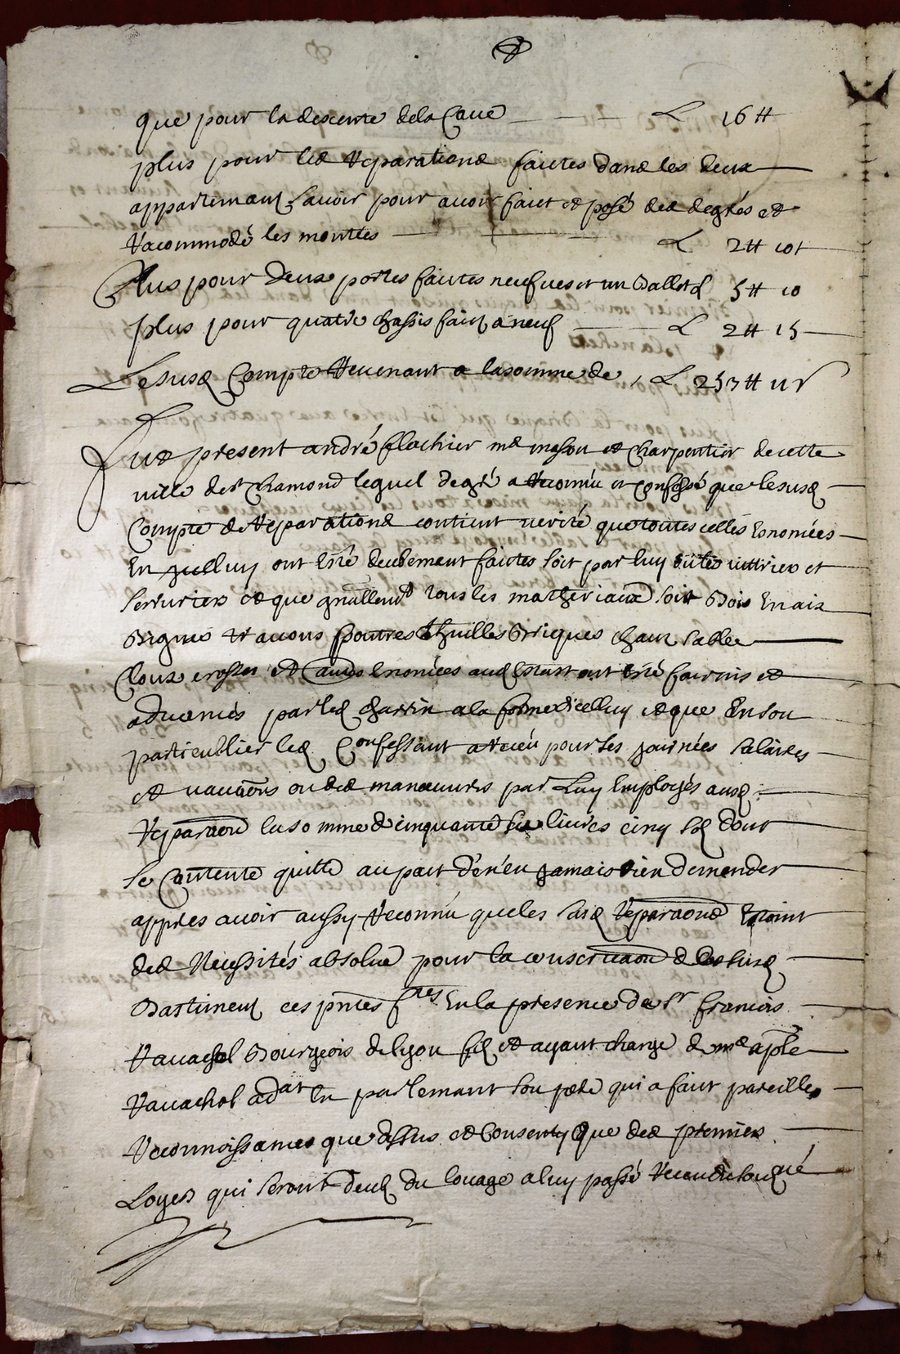 que pour la descente dela Cave — L 16 tt
plus pour les reparations faites dans les deux
appartemans savoir pour avoir faict et posé des degrés et
racommodé les montées — L 2 tt 10 s
Plus pour deux portes faites neufves et un 5 tt 10
plus pour quatre chassis faits a neuf — L 2 tt 15
Le susd Compte revenant a la somme de L 253 tt
Fut present andré flachier me masson et charpantier de cette
ville de st Chamond lequel de gré a reconnu et confessé que le susd
Compte de reparations contient verité que toutes celles Enonçées
En icelluy ont Esté deubement faites soit par luy vittrier et
serrurier et que tous les matheriaux soit bois En aix
poutres thuilles briques chaux sable
Cloux et autres Enonçées aud ont Esté fournis et
advancés par led a la forme d'icelluy et que En son
particullier led Confessant a receu pour ses journées salaires
et vacaons ou des manœuvres par Luy Employés ausd
reparaons la somme de cinquante six livres cinq sols dont
se Contente quitte au pact de n'en jamais rien demender
appres avoir aussy reconnu que les susd reparaons Estoint
des Necessités absolue pour la de susd
Bastiment ces pntes En la presence de sr francois
ravachol Bourgeois de lyon fils et ayant charge de me
ravachol adat En parlemant son pere qui a faict pareille
reconnoissance que dessus et Consenty que des premiers
Loyers qui seront deub du louage a luy passé